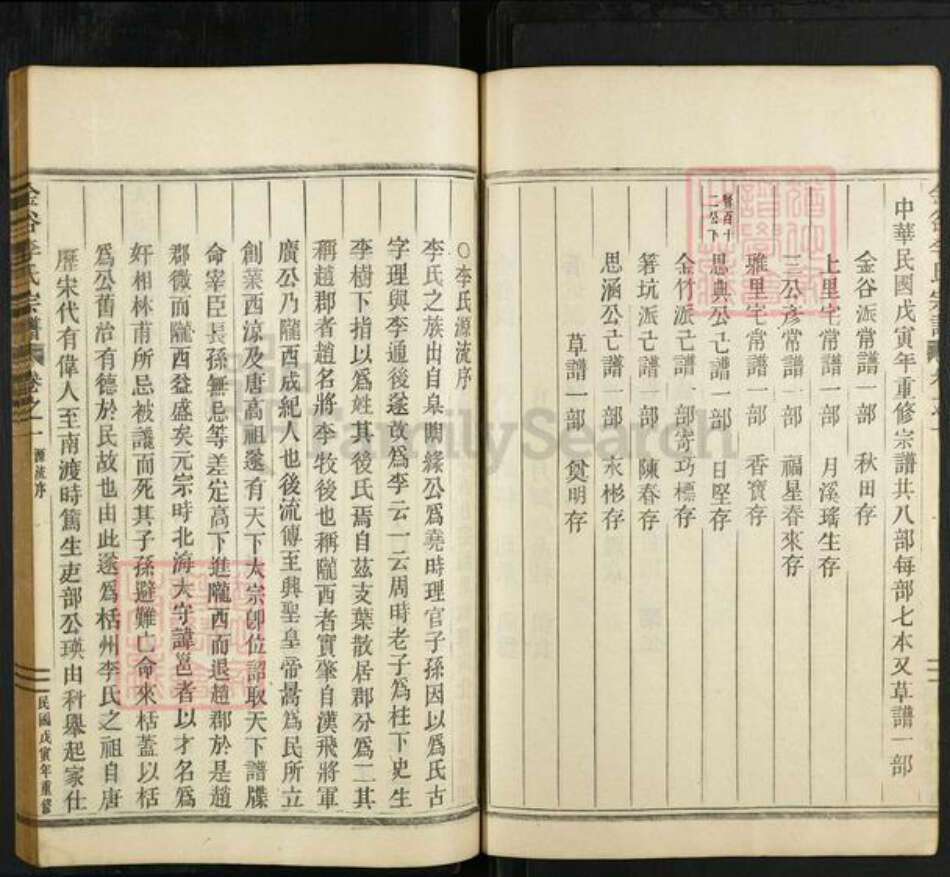 中華民國戊寅年重修宗譜共八部每部七本又草譜一部
金谷派常譜一部　秋田存
上里宅常譜一部　月溪瑤生存
三公彥常譜一部　福星春來存
雅里宅常譜一部　香寶存
賢百十二公下
思典公亡譜一部　日堅存
金竹派亡譜一部寄巧標存
箬坑派亡譜一部　陳春存
思涵公亡譜一部　永彬存
草譜一部　奐明存
金谷李氏宗譜
○李氏源流序
李氏之族出自皋陶緣公為堯時理官子孫因以為氏古
字理與李通後遂改為李云一云周時老子為柱下史生
李樹下指以為姓其後氏焉自茲支葉散居郡分為二其
稱趙郡者趙名將李牧後也稱隴西者實肇自漢飛將軍
廣公乃隴西成紀人也後流傳至興聖皇帝暠為民所立
創業西涼及唐高祖遂有天下太宗卽位詔取天下譜牒
命宰臣長孫無忌等差定高下進隴西而退趙郡於是趙
郡微而隴西益盛矣元宗時北海太守諱邕者以才名為
奸相林甫所忌被讒而死其子孫避難亡命來栝蓋以栝
為公舊治有德於民故也由此遂為栝州李氏之祖自唐
歷宋代有偉人至南渡時篤生吏部公瑛由科舉起家仕
金谷李氏宗譜
卷之一
源流序
民國戊寅年重修
FamilySearch